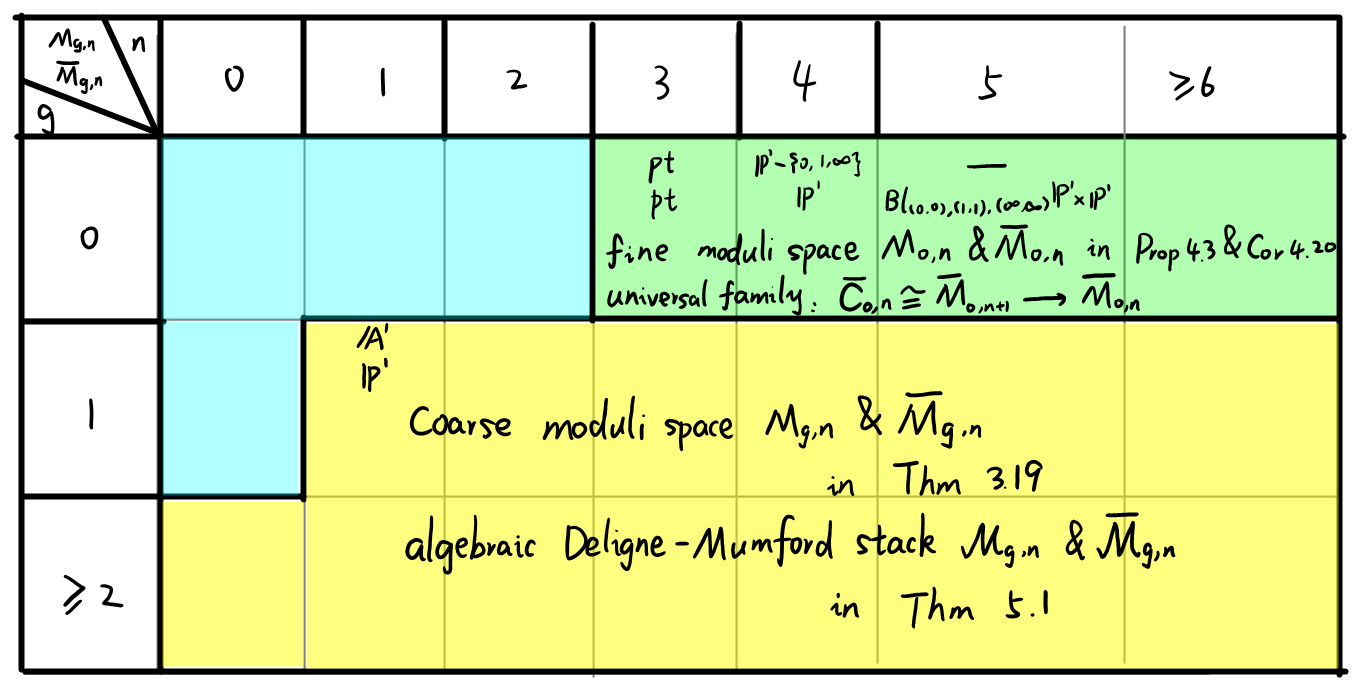 M_{g,n} n
M̅_{g,n}
g
0 1 2 3 4 5 ⩾6
0
pt ℙ¹-{0,1,∞} —
pt ℙ¹ Bl_{(0,0),(1,1),(∞,∞)} ℙ¹×ℙ¹
fine moduli space M_{0,n} & M̅_{0,n} in Prop 4.3 & Cor 4.20
universal family: C̅_{0,n} ≅ M̅_{0,n+1} ⟶ M̅_{0,n}
1
𝔸¹
ℙ¹
Coarse moduli space M_{g,n} & M̅_{g,n}
in Thm 3.19
⩾2
algebraic Deligne-Mumford stack M_{g,n} & M̅_{g,n}
in Thm 5.1